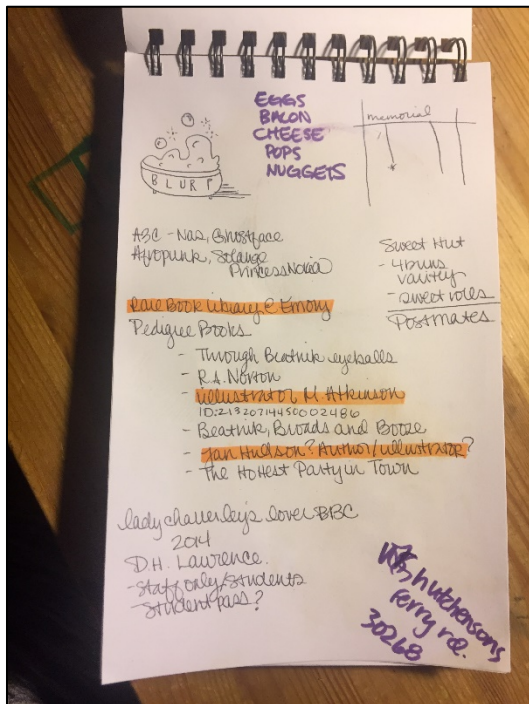 EGGS
BACON
CHEESE
POPS
NUGGETS
memorial
BLURT
A3C - Nas, Ghostface
Afropunk, Solange
Princess Nokia
Sweet Hut
- 4 buns
variety
- sweet rolls
Postmates
Rare Book Library @ Emory
Pedigree Books
- Through Beatnik eyeballs
- R.A. Norton
- illustrator M. Atkinson
ID:21320714450002486
- Beatnik, Broads and Booze
- Jan Hudson? Author/illustrator?
- The Hottest Party in Town
lady chatterley's lover BBC
2014
D.H. Lawrence.
- Staff only/students
- Student pass?
hutchensons
ferry rd.
30268